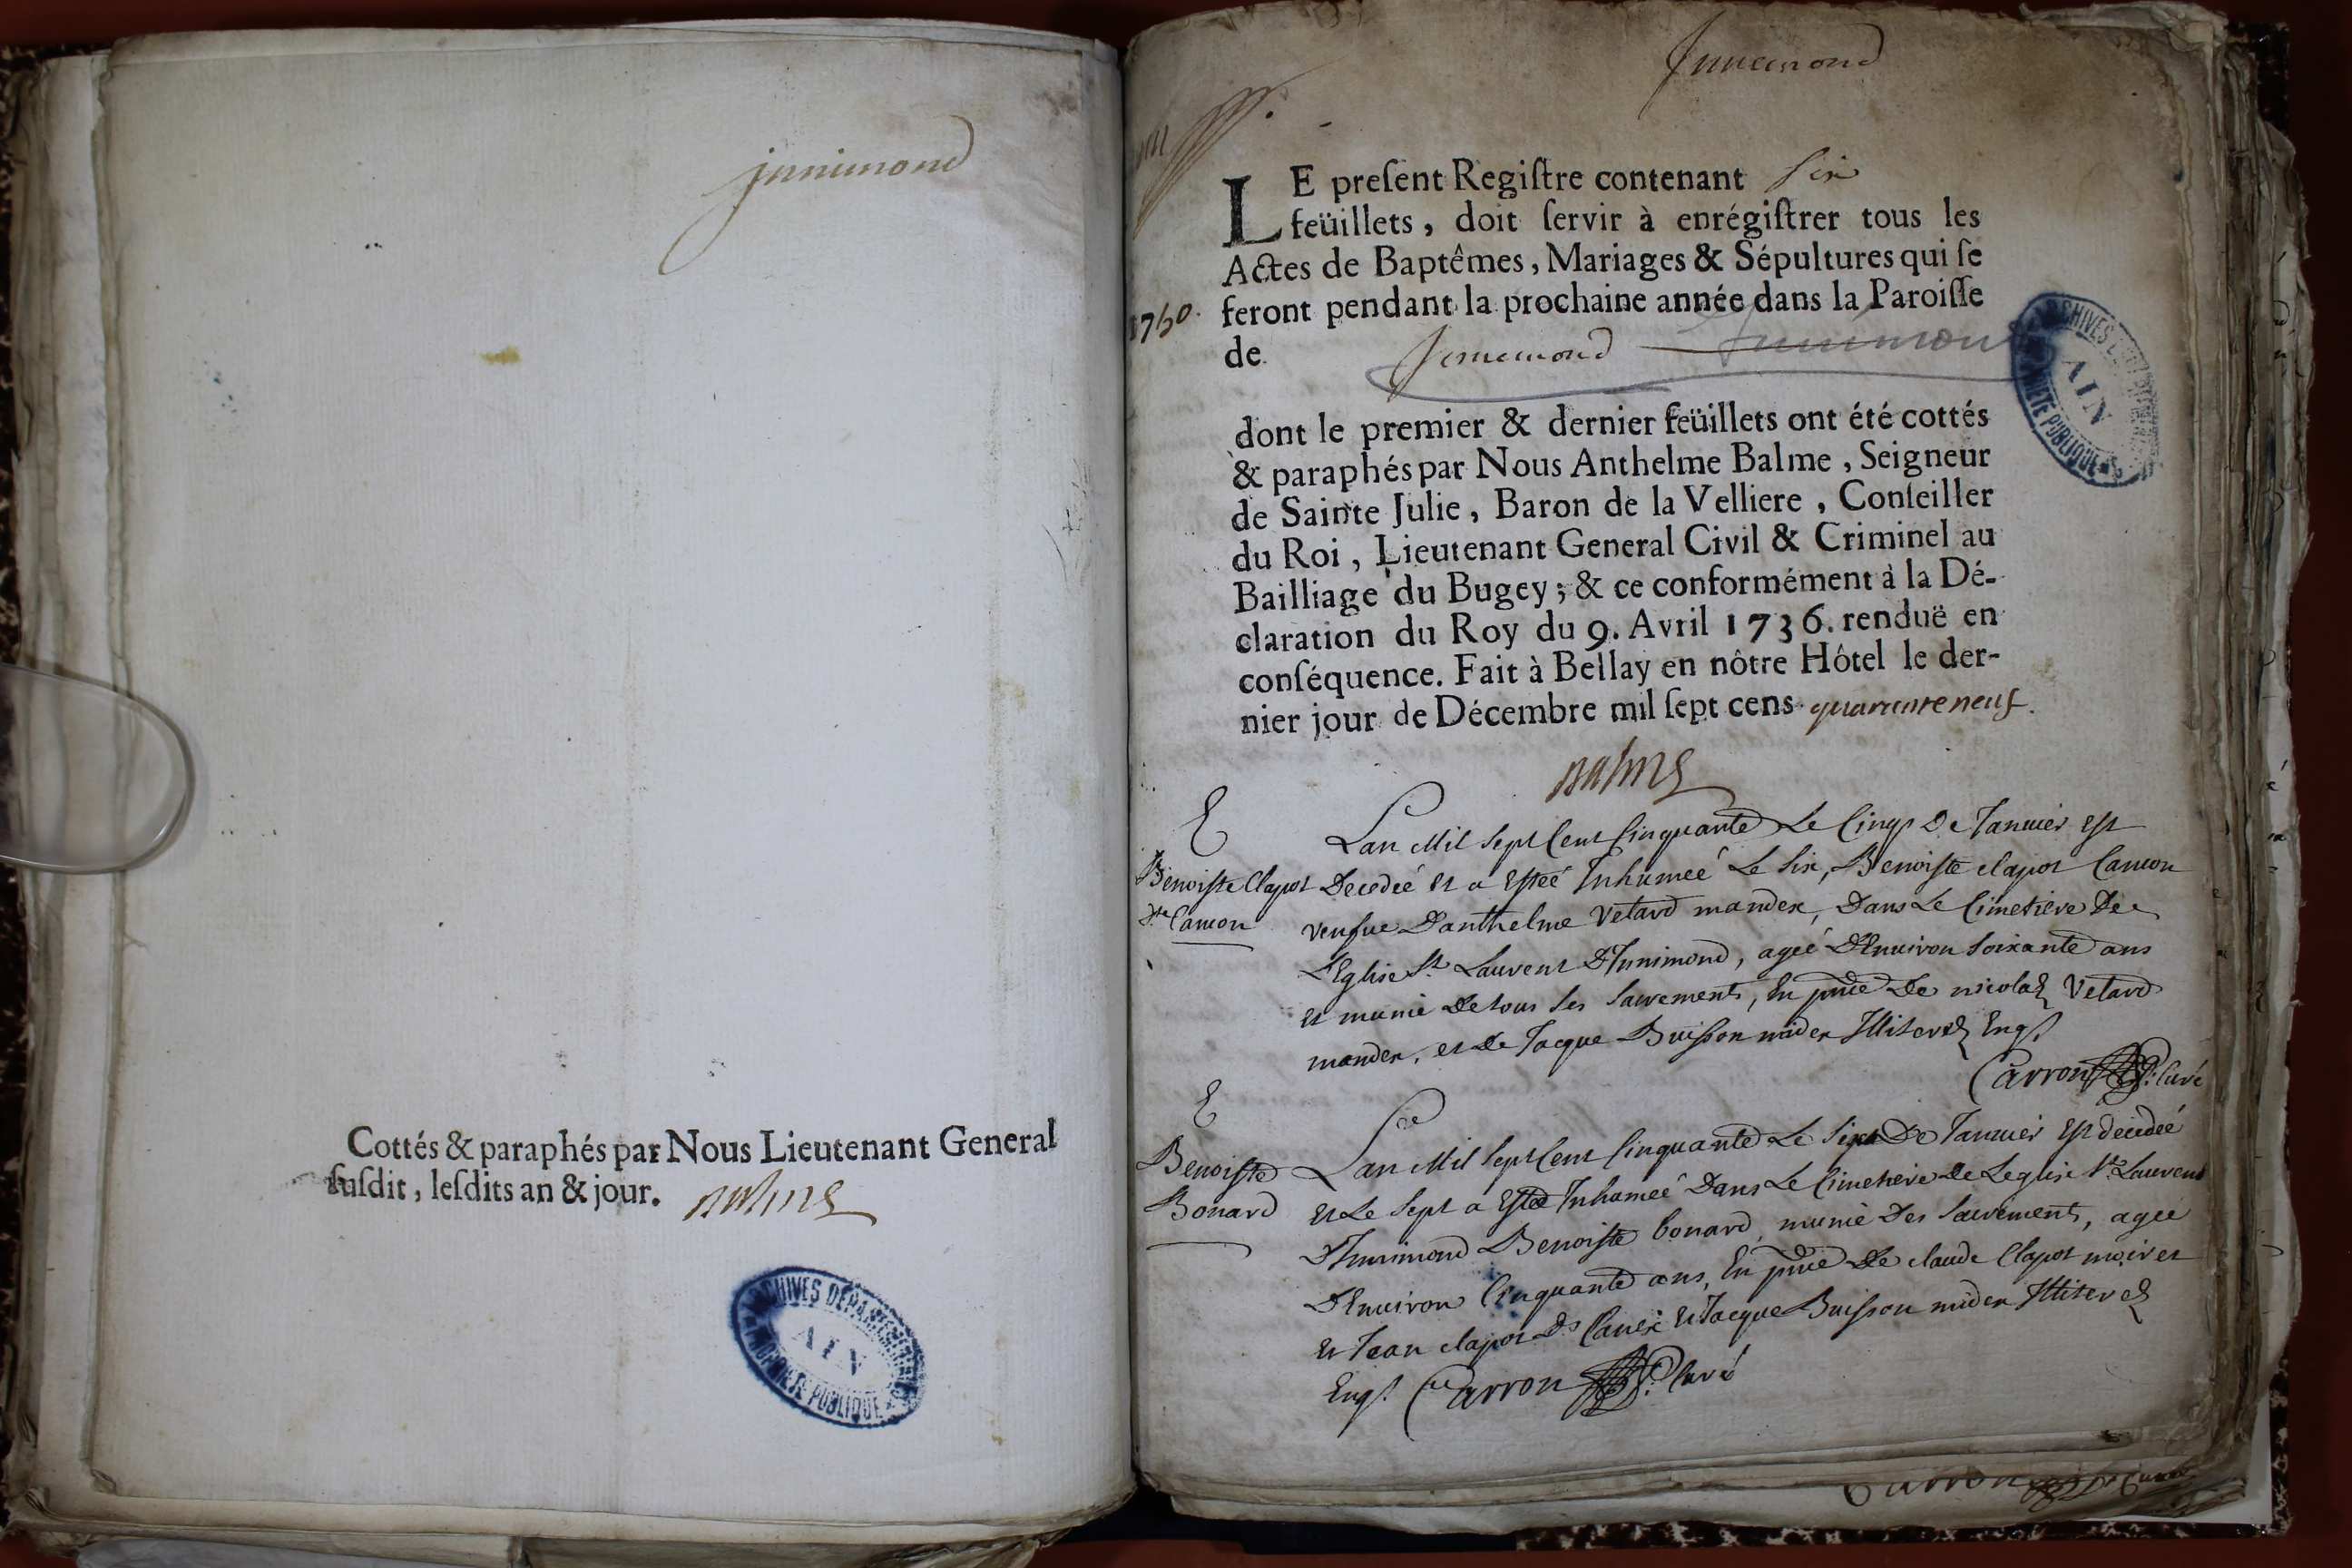 junimond
Cottés & paraphés par Nous Lieutenant General
ſuſdit, leſdits an & jour. Balme
ARCHIVES DÉPARTEMENTALES
AIN
PROPRIÉTÉ PUBLIQUE
Innimond
LE preſent Regiſtre contenant six
feüillets, doit ſervir à enrégiſtrer tous les
Actes de Baptêmes, Mariages & Sépultures qui ſe
1750. feront pendant la prochaine année dans la Paroiſſe
de Innimond Innimond
ARCHIVES DÉPARTEMENTALES
AIN
PROPRIÉTÉ PUBLIQUE
dont le premier & dernier feüillets ont été cottés
& paraphés par Nous Anthelme Balme, Seigneur
de Sainte Julie, Baron de la Velliere, Conſeiller
du Roi, Lieutenant General Civil & Criminel au
Bailliage du Bugey; & ce conformément à la Dé-
claration du Roy du 9. Avril 1736. renduë en
conſéquence. Fait à Bellay en nôtre Hôtel le der-
nier jour de Décembre mil ſept cens quarante neuf.
Balme
E
Benoiste Clapot
Dte Camon
Lan Mil Sept Cent Cinquante Le Cinqe De Januier est
Decedeé et a Esteé Inhumeé Le Six, Benoiste clapot Camon
veufue Danthelme Vetard mander, Dans Le Cimetiere De
LEglise St. Laurent DInnimond, ageé DEnuiron Soixante ans
et munie De tous Ses Sacrements, En pnce De nicolas Vetard
mander, et De Jacque Buisson mder Illiteres Enqs.
Carron curé
E
Benoiste
Bonard
Lan Mil Sept Cent Cinquante Le Six De Januier Est decedeé
et Le Sept a Esté Inhumeé Dans Le Cimetiere de Leglise St. Laurent
DInnimond Benoiste bonard, munie Des Sacrements, ageé
DEnuiron Cinquante ans, En pnce De claude Clapot
et Jean clapot Ds Et Jacque Buisson mder Illiteres
Enqs. Carron Curé
Carron Curé